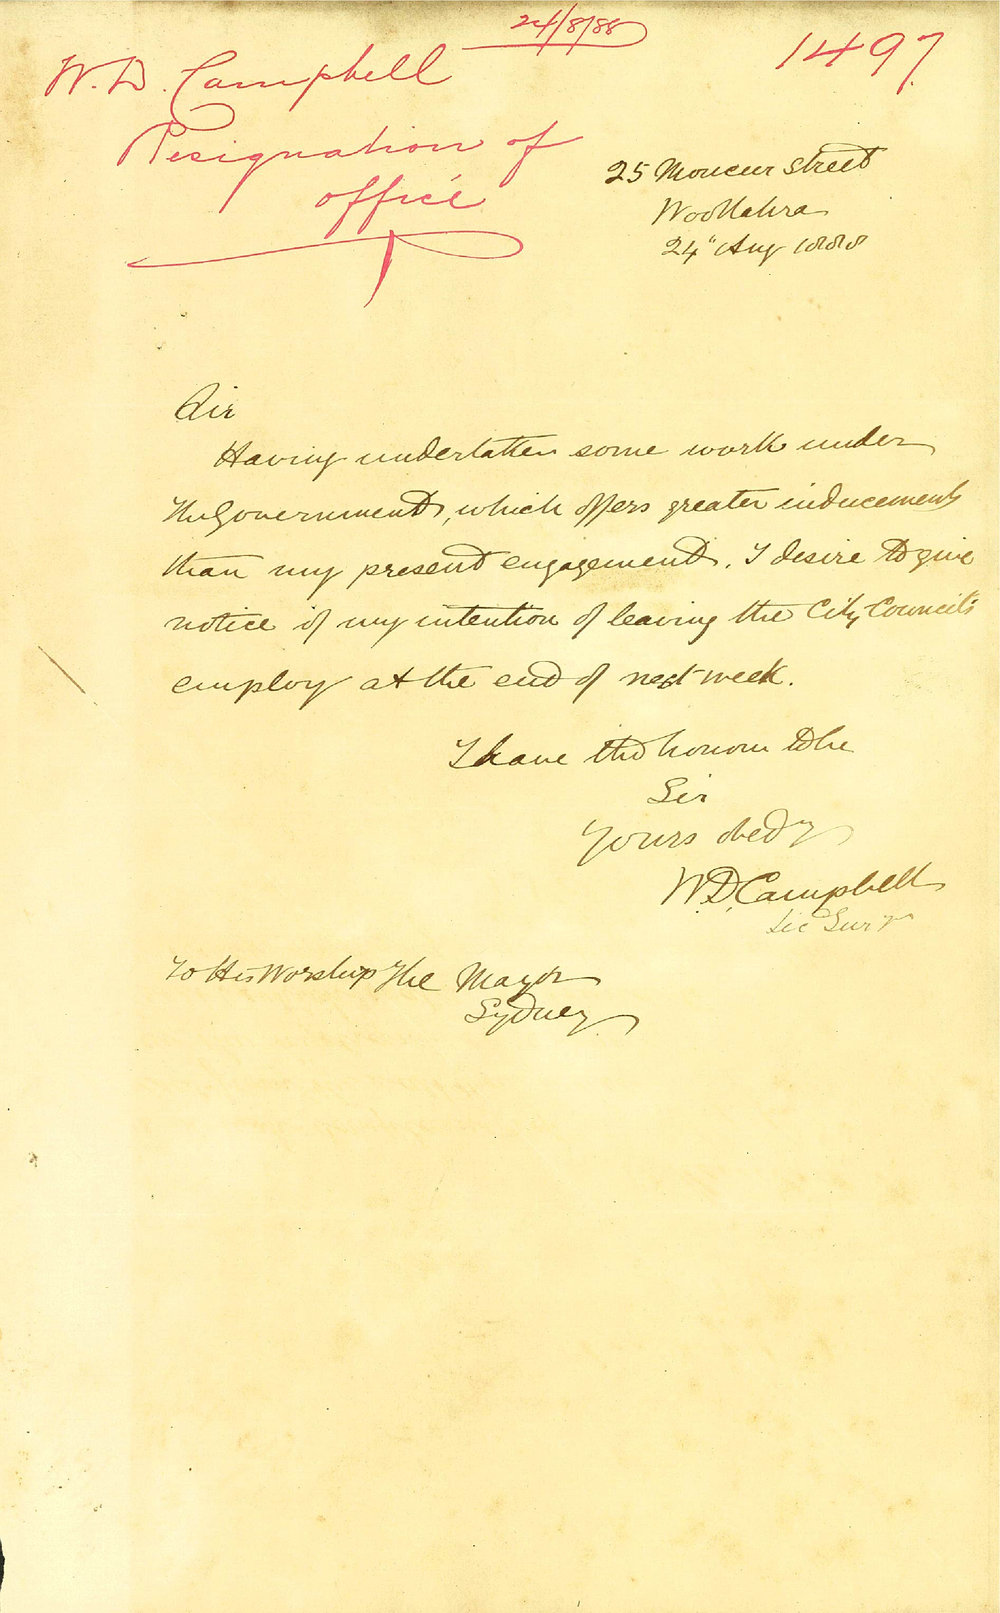 24/8/88
1497
W. D. Campbell
Resignation of
office
25 Moncur Street
Woollahra
24" Aug 1888
Sir
Having undertaken some work under
the Government, which offers greater inducements
than my present engagement, I desire to give
notice of my intention of leaving the City Council's
employ at the end of next week.
I have the honour to be
Sir
Yours obedy
W.D. Campbell
Lic Surv
To His Worship The Mayor
Sydney